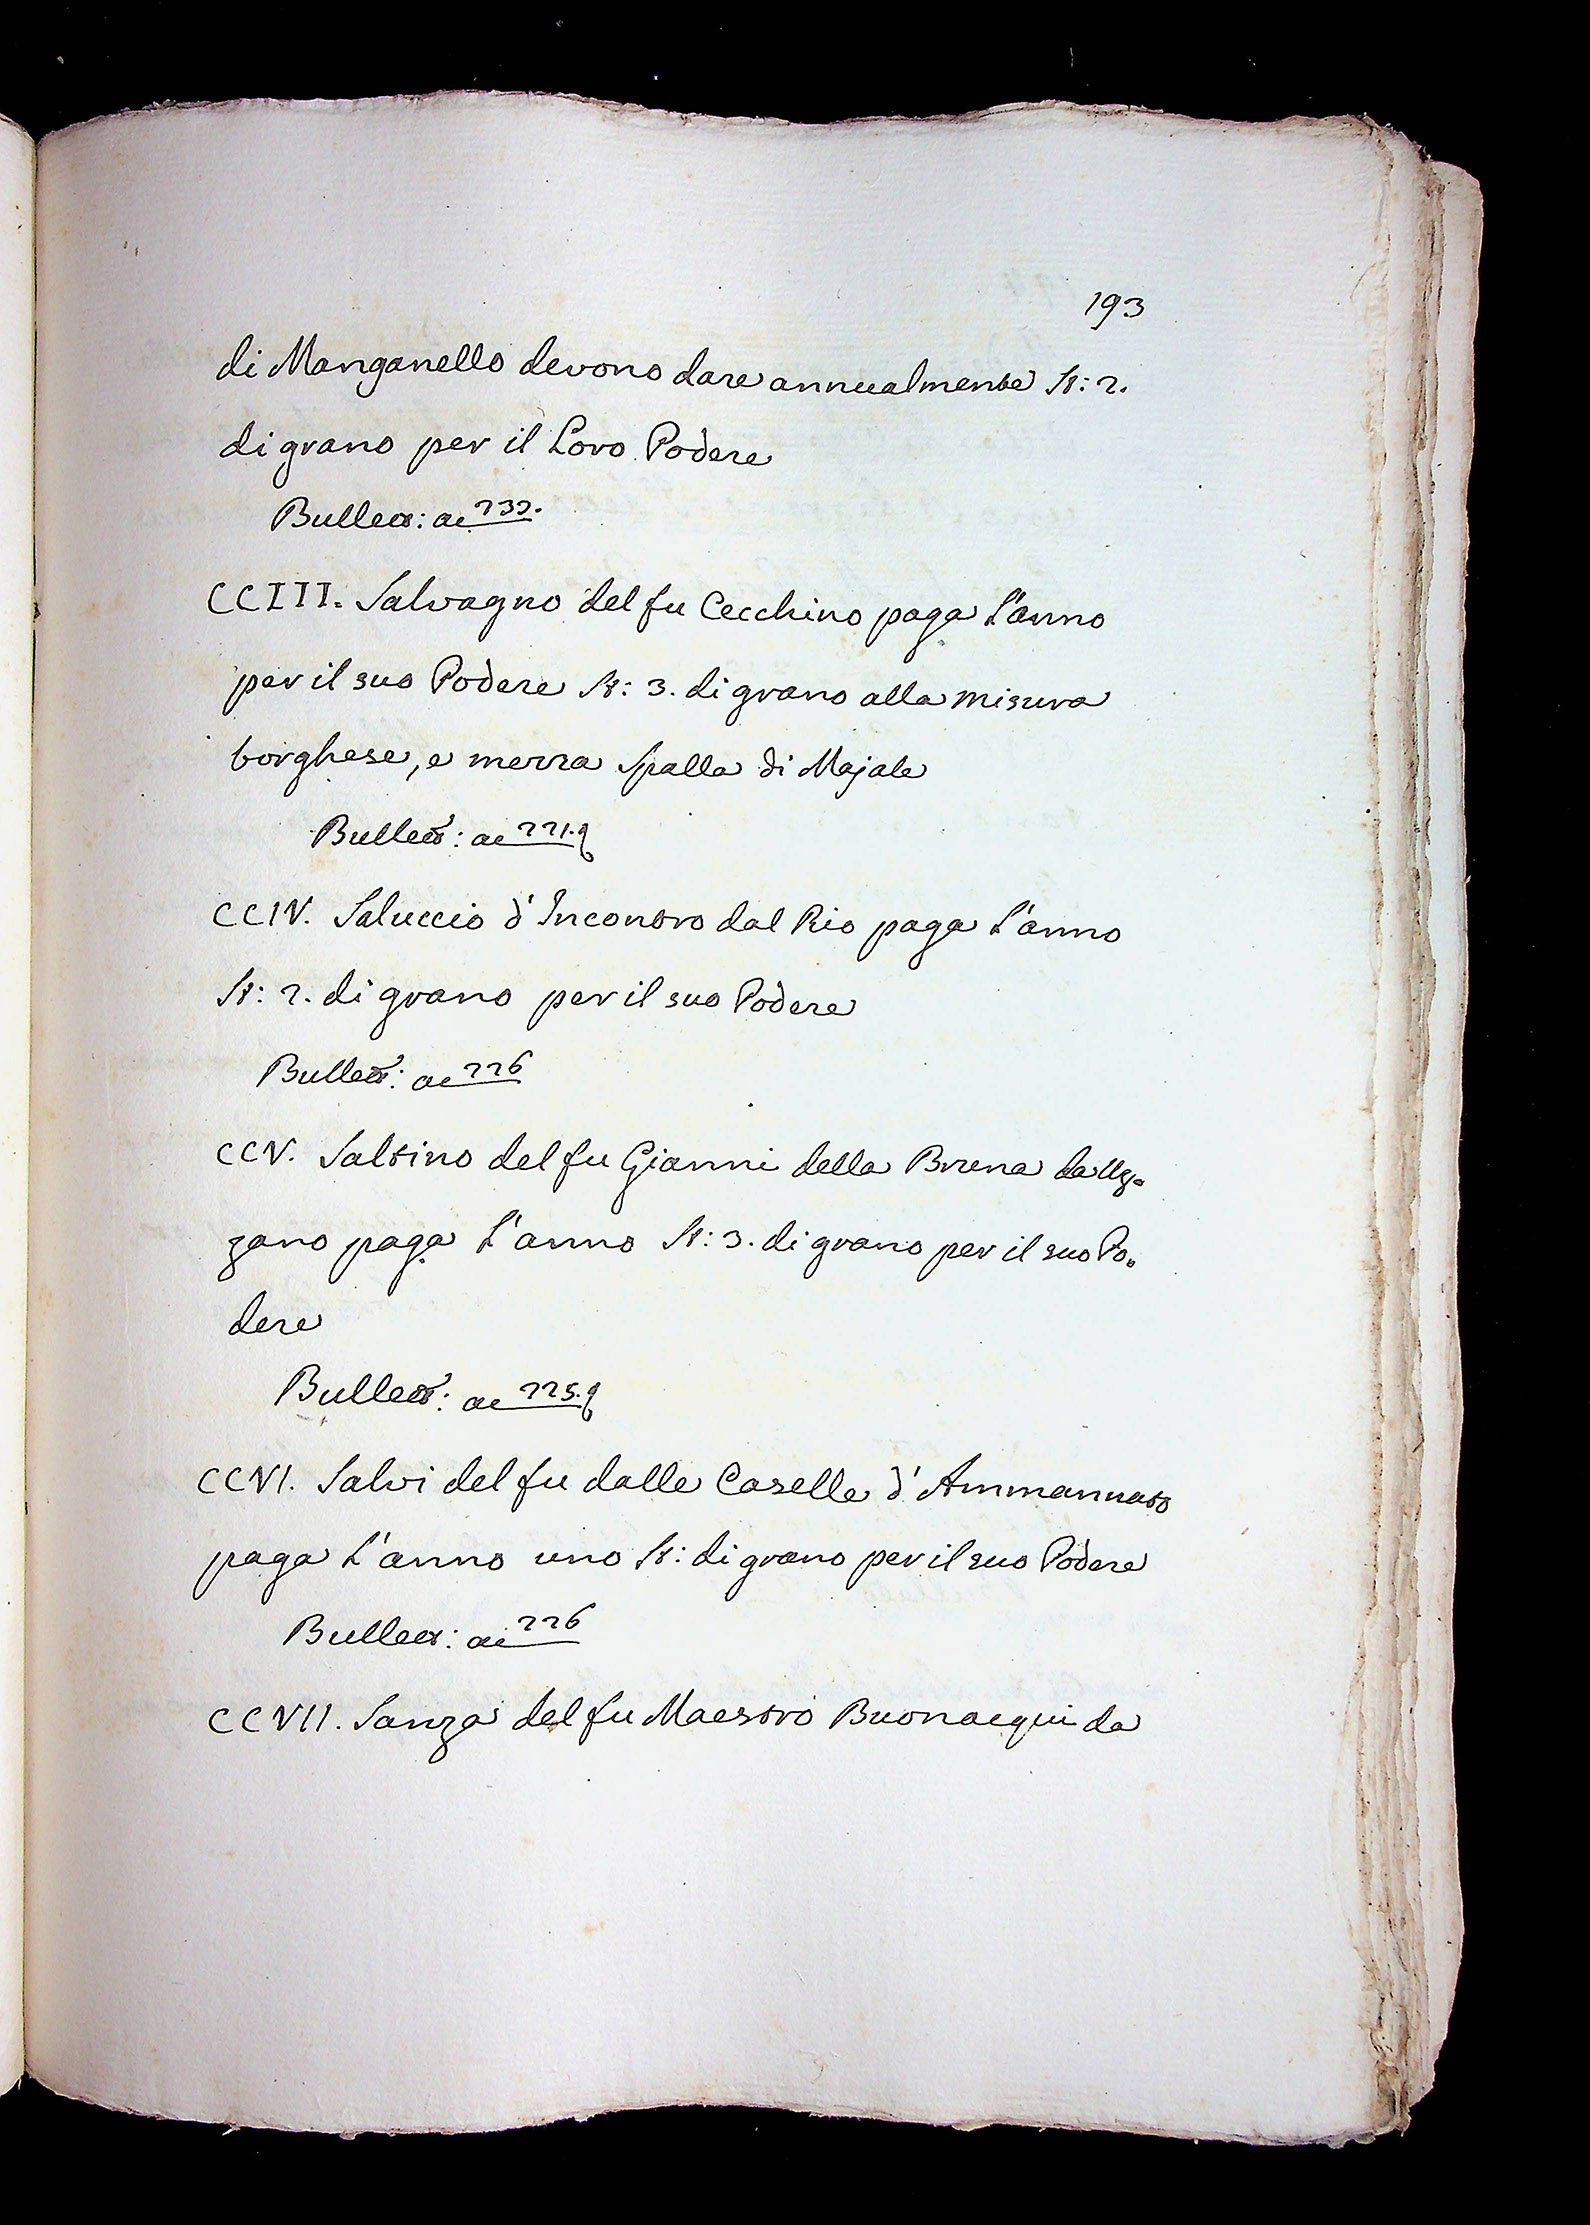 193
di Manganello devono dare annualmente St: 2.
di grano per il Loro Podere
Bullett: ac 232.
CCIII. Salvagno del fu Cecchino paga l'anno
per il suo Podere St: 3. di grano alla misura
borghese, e mezza Spalla di Majale
Bullett: ac 221.
CCIV. Saluccio d'Incontro dal Rio paga l'anno
St: 2. di grano per il suo Podere
Bullett: ac 226
CCV. Saltino del fu Gianni della Bruna
zano paga l'anno St: 3. di grano per il suo Po-
dere
Bullett: ac 225.
CCVI. Salvi del fu dalle Caselle d'Ammannato
paga l'anno uno St: di grano per il suo Podere
Bullett: ac 226
CCVII. Sanza del fu Maestro Buonacqui da